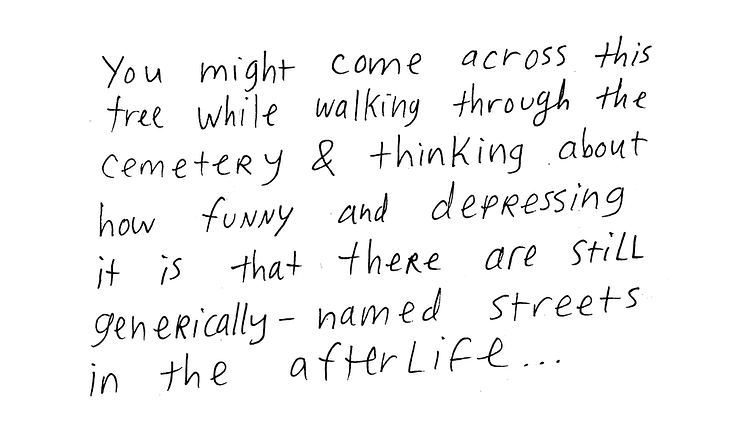 You might come across this
tree while walking through the
cemetery & thinking about
how funny and depressing
it is that there are still
generically-named streets
in the afterlife...